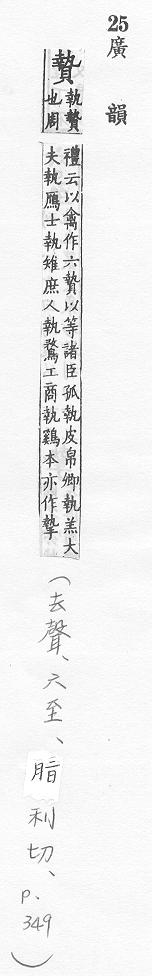 25 廣韻
贄
執贄
也周
禮云以禽作六贄以等諸臣孤執皮帛卿執羔大
夫執鴈士執雉庶人執鶩工商執鷄本亦作摯
(去聲、六至、脂利切、p.349)